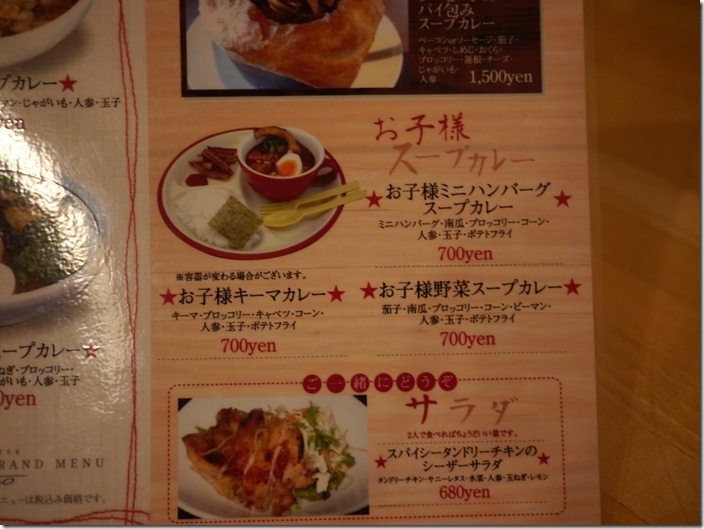 パイ包み
スープカレー
ベーコンorソーセージ・茄子・
キャベツ・しめじ・おくら・
ブロッコリー・蓮根・チーズ・
じゃがいも・
人参
1,500yen
プカレー★
マン・じゃがいも・人参・玉子
yen
ープカレー★
ねぎ・ブロッコリー・
がいも・人参・玉子
0yen
RAND MENU
ニューは税込み価格です。
お子様
スープカレー
★お子様ミニハンバーグ★
スープカレー
ミニハンバーグ・南瓜・ブロッコリー・コーン・
人参・玉子・ポテトフライ
700yen
※容器が変わる場合がございます。
★お子様キーマカレー★
キーマ・ブロッコリー・キャベツ・コーン・
人参・玉子・ポテトフライ
700yen
★お子様野菜スープカレー★
茄子・南瓜・ブロッコリー・コーン・ピーマン・
人参・玉子・ポテトフライ
700yen
ご一緒にどうぞ
サラダ
2人で食べればちょうどいい量です。
★スパイシータンドリーチキンの
シーザーサラダ★
タンドリーチキン・サニーレタス・水菜・人参・玉ねぎ・レモン
680yen